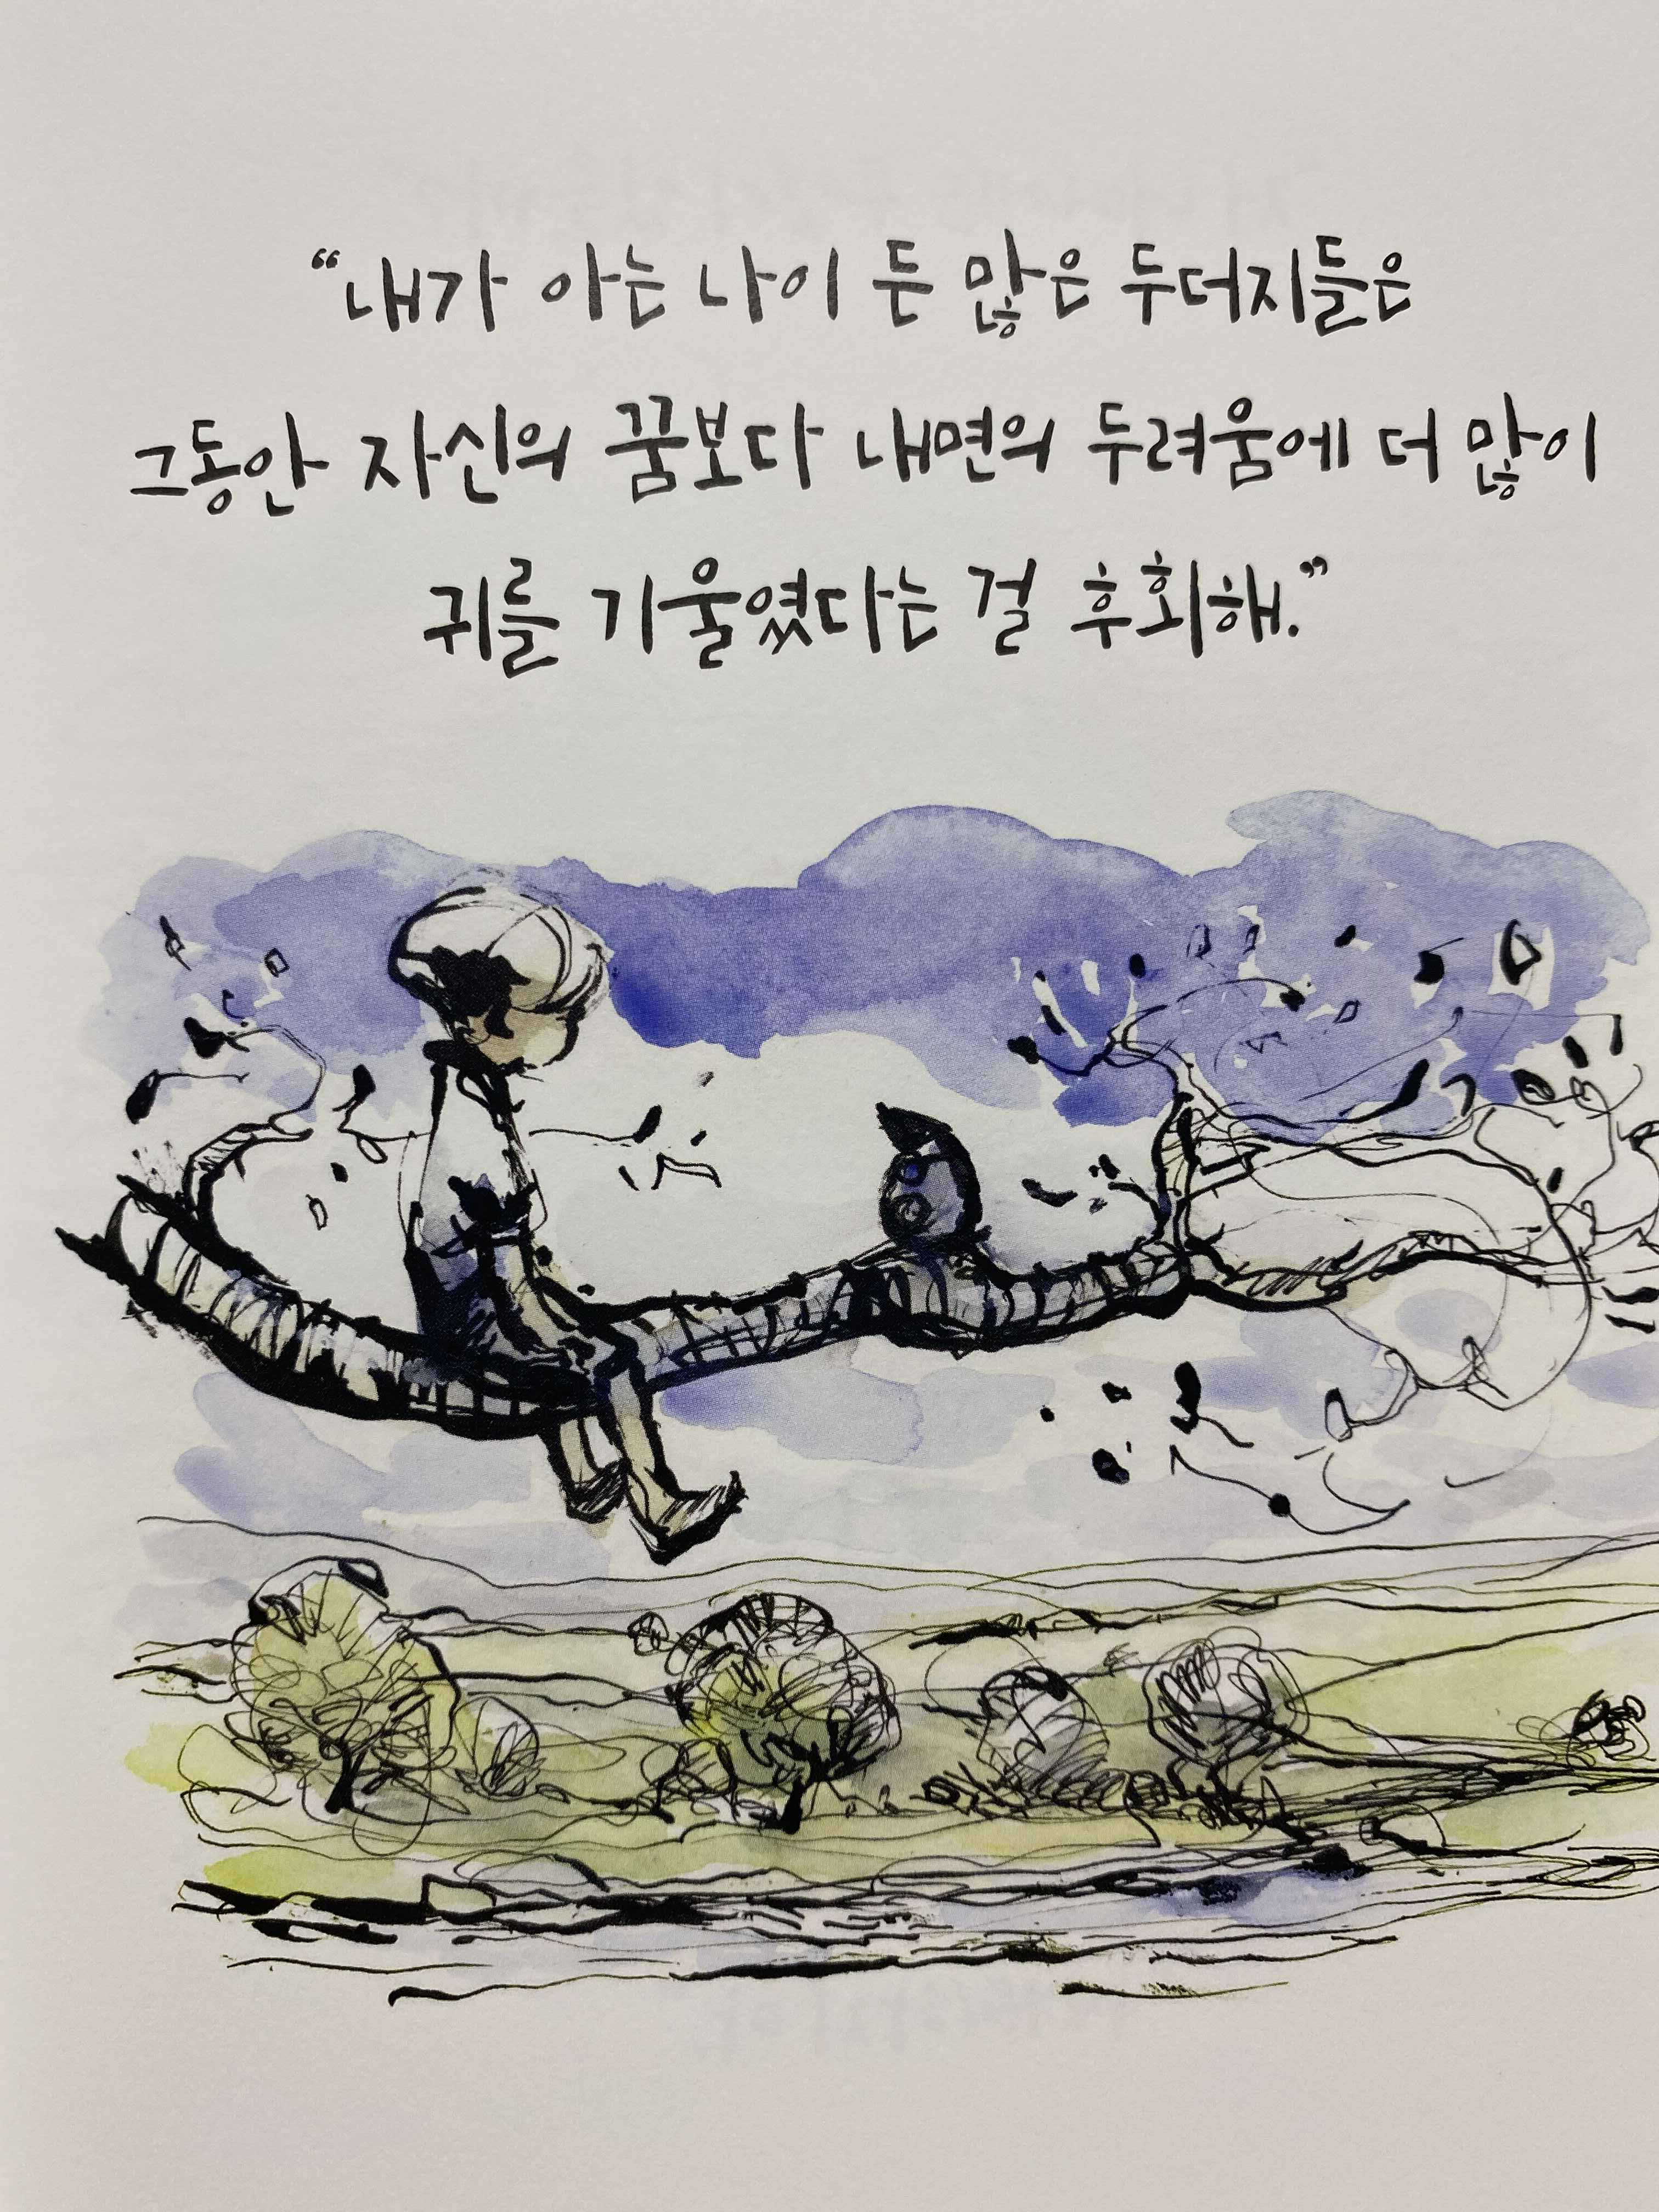 “내가 아는 나이 든 많은 두더지들은
그동안 자신의 꿈보다 내면의 두려움에 더 많이
귀를 기울였다는 걸 후회해.”